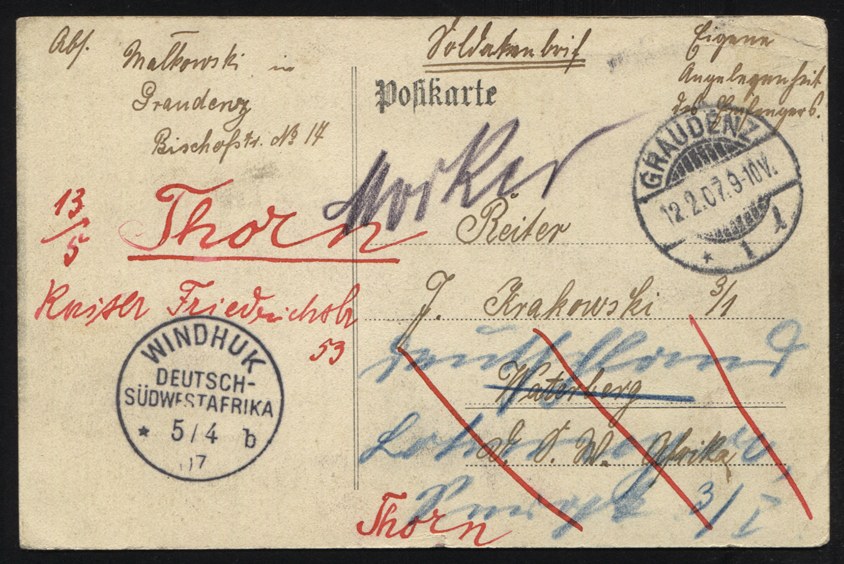 Abs. Malkowski in
Graudenz
Bischofstr. No 14
Soldatenbrief
Eigene
Angelegenheit
des Empfängers.
Postkarte
GRAUDENZ
12.2.07.9-10V.
* 1 l
13/5
Thorn
Kaiser Friedrichstr
53
Reiter
J. Krakowski 3/1
Deutschland
Waterberg
D. S. W. Afrika
3/I
WINDHUK
DEUTSCH-
SÜDWESTAFRIKA
* 5/4 b
07
Thorn